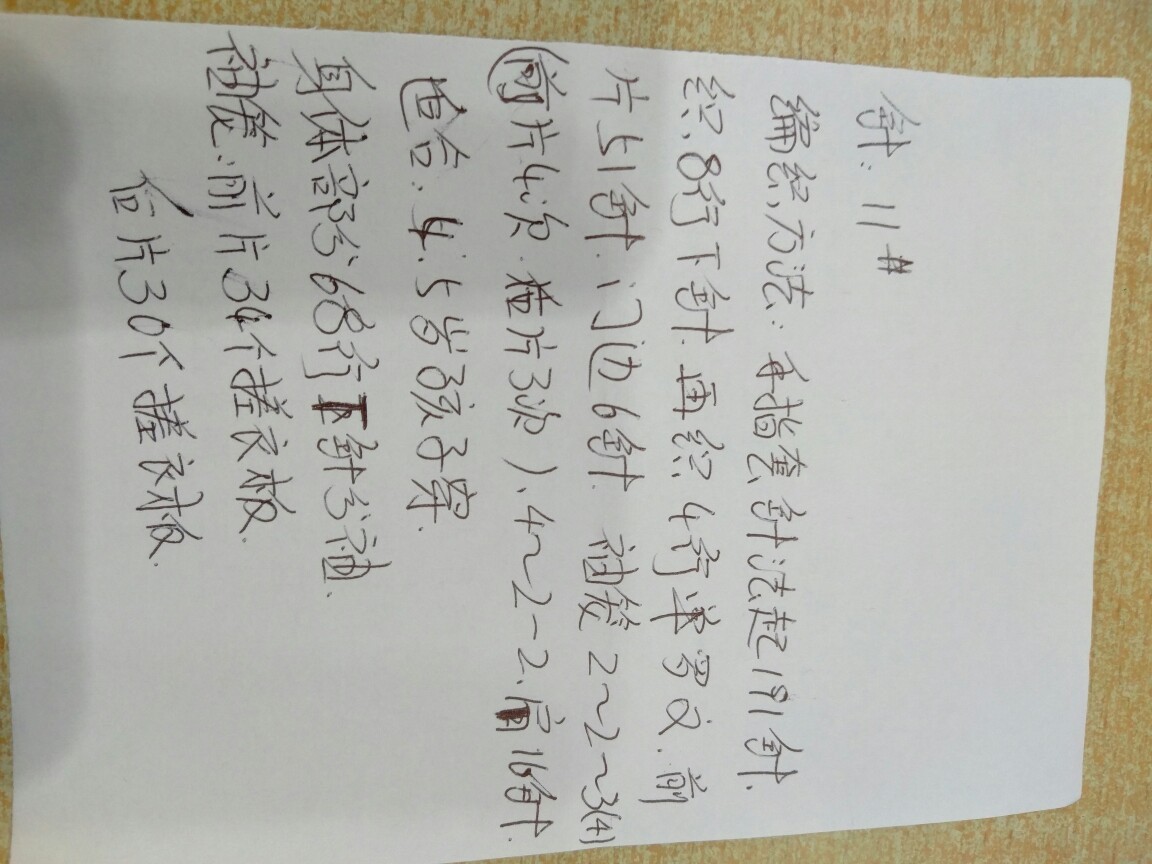 针:11#
编织方法:手指套针法起191针.
织.8行下针.再织4行单罗文.前
片51针.门边6针.袖笼2~2~3(4)
(前片4次.后片3次).4~2-2.肩16针.
适合.4.5岁孩子穿.
身体部分68行下针分袖.
袖笼:前片34个搓衣板
后片30个搓衣板.